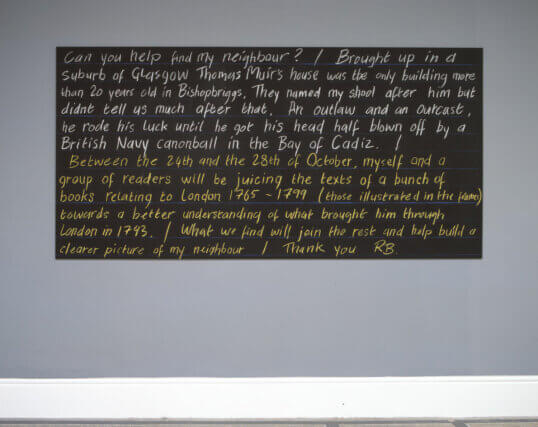 Can you help find my neighbour? / Brought up in a
suburb of Glasgow Thomas Muir's house was the only building more
than 20 years old in Bishopbriggs. They named my shool after him but
didnt tell us much after that. An outlaw and an outcast,
he rode his luck until he got his head half blown off by a
British Navy canonball in the Bay of Cadiz. /
Between the 24th and the 28th of October, myself and a
group of readers will be juicing the texts of a bunch of
books relating to London 1765 - 1799 (those illustrated in the frame)
towards a better understanding of what brought him through
London in 1793. / What we find will join the rest and help build a
clearer picture of my neighbour / Thank you RB.